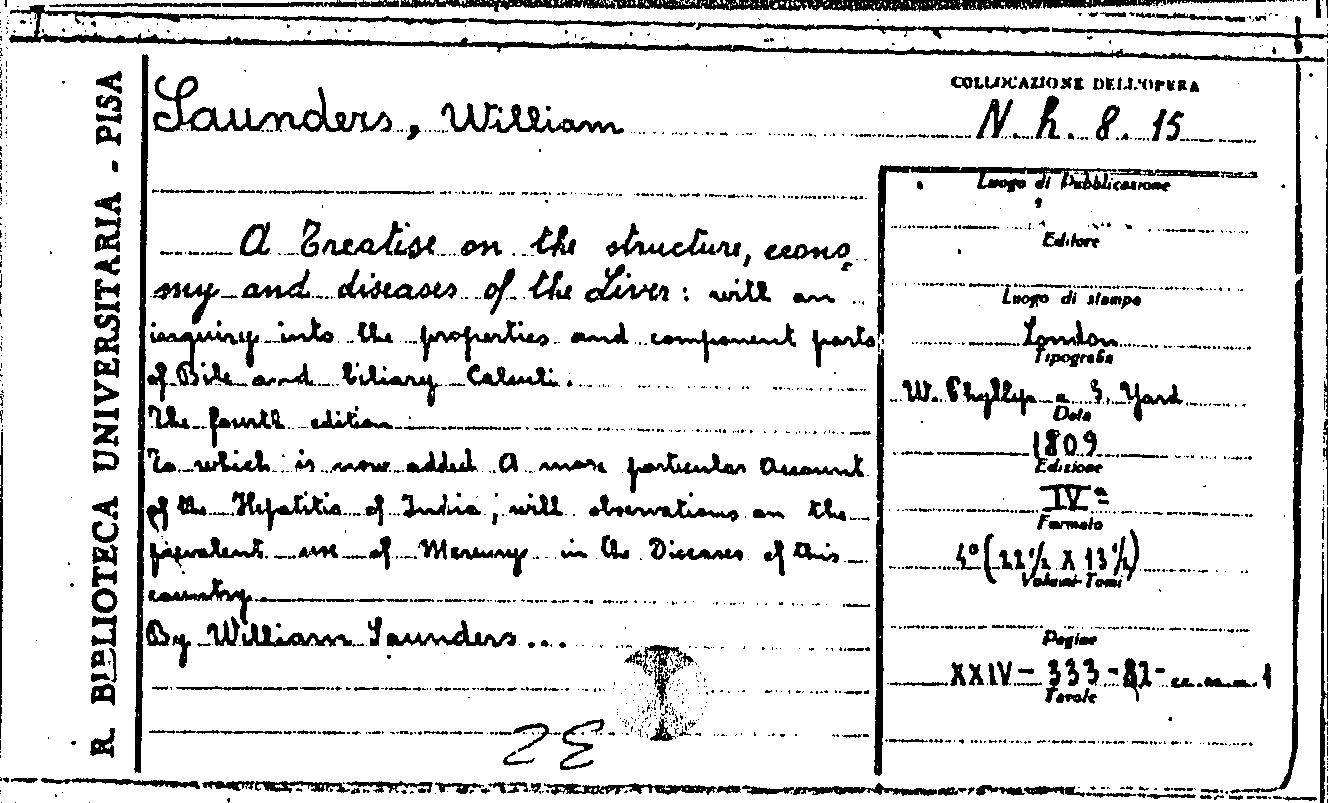 R. BIBLIOTECA UNIVERSITARIA - PISA
Saunders, William
COLLOCAZIONE DELL'OPERA
N. h. 8. 15
A Treatise on the structure, econo
my and diseases of the Liver: with an
inquiry into the properties and component parts
of Bile and biliary Calculi.
The fourth edition
To which is now added A more particular Account
of the Hepatitis of India; with observations on the
prevalent use of Mercury in the Diseases of this
country.
By William Saunders...
Luogo di Pubblicazione
Editore
Luogo di stampa
London
Tipografia
W. Phyllips a G. Yard
Data
1809
Edizione
IVª
Formato
4º (22 1/2 X 13 1/2)
Volumi-Tomi
Pagine
XXIV - 333 - 82 - cc. 1
Tavole